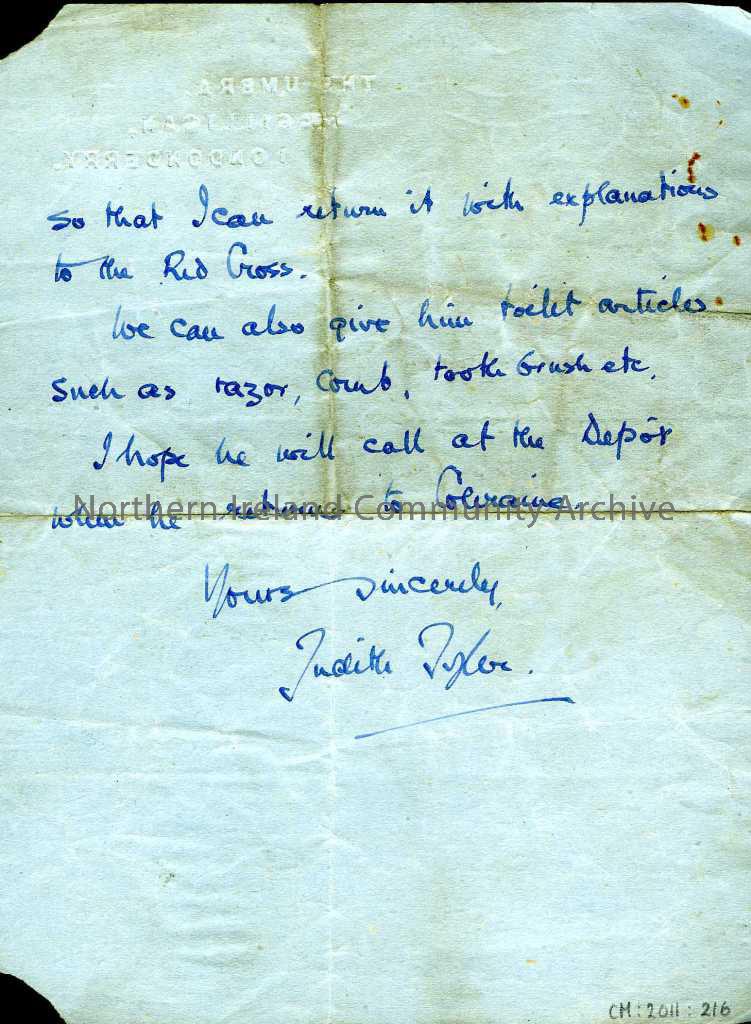 THE UMBRA,
MAGILLIGAN,
LONDONDERRY.
so that I can return it with explanations
to the Red Cross.
We can also give him toilet articles
such as razor, comb, tooth brush etc.
I hope he will call at the Depôt
when he returns to Coleraine.
Northern Ireland Community Archive
Yours sincerely,
Judith Tyler.
CM:2011:216